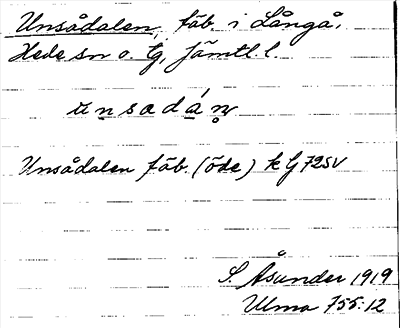 Unsådalen, fäb. i Långå,
Hede sn o. tg, Jämtl. l.
Unsådalen fäb. (öde) k G 72 SV
S. Åsander 1919
Ulma 755:12